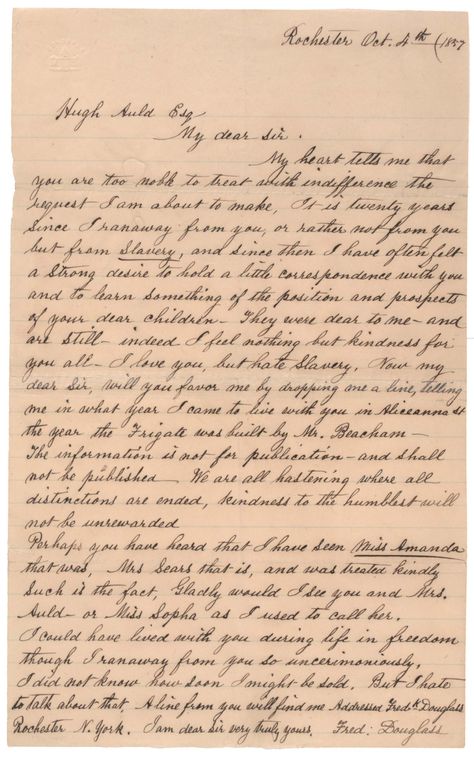 Rochester Oct. 4th (1857
Hugh Auld Esq
My dear sir.
My heart tells me that
you are too noble to treat with indifference the
request I am about to make, It is twenty years
since I ranaway from you, or rather not from you
but from Slavery, and since then I have often felt
a strong desire to hold a little correspondence with you
and to learn something of the position and prospects
of your dear children— They were dear to me— and
are still— indeed I feel nothing but kindness for
you all— I love you, but hate Slavery, Now my
dear Sir, will you favor me by dropping me a line, telling
me in what year I came to live with you in Aliceanna st
the year the Frigate was built by Mr. Beacham—
The information is not for publication— and shall
not be published We are all hastening where all
distinctions are ended, kindness to the humblest will
not be unrewarded
Perhaps you have heard that I have seen Miss Amanda
that was, Mrs Sears that is, and was treated kindly
Such is the fact, Gladly would I see you and Mrs.
Auld— or Miss Sopha as I used to call her.
I could have lived with you during life in freedom
though I ranaway from you so uncerimoniously,
I did not know how soon I might be sold. But I hate
to talk about that. A line from you will find me Addressed Fredk Douglass
Rochester N. York. I am dear sir very truly yours. Fred: Douglass